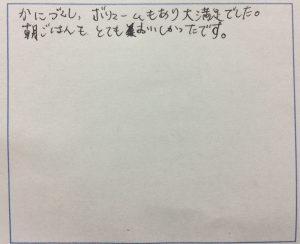 かにづくし、ボリュームもあり大満足でした。
朝ごはんも とても おいしかったです。